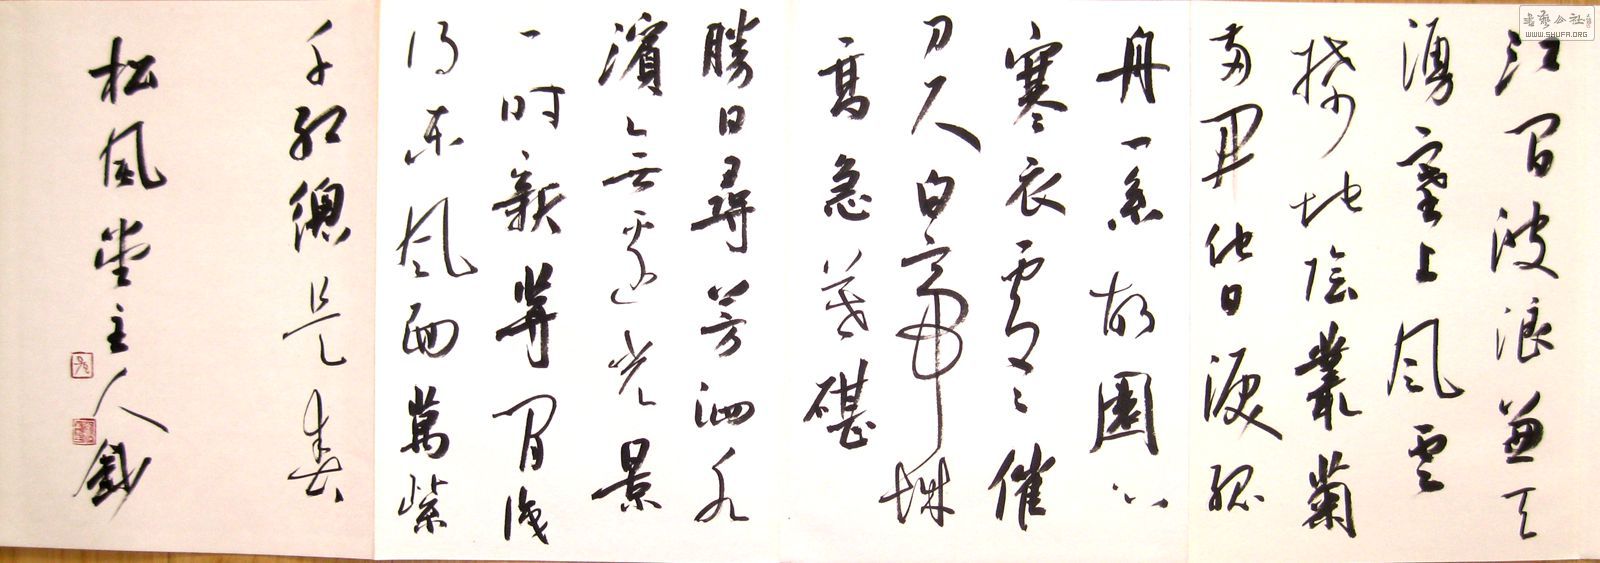 江間波浪兼天
湧塞上風雲
接地陰叢菊
兩開他日淚孤
舟一系故園心
寒衣處々催
刀尺白帝城
高急暮碪
勝日尋芳泗水
濱无邊光景
一時新等閒識
得東風面萬紫
千紅總是春
松風堂主人
書藝公社
WWW.SHUFA.ORG